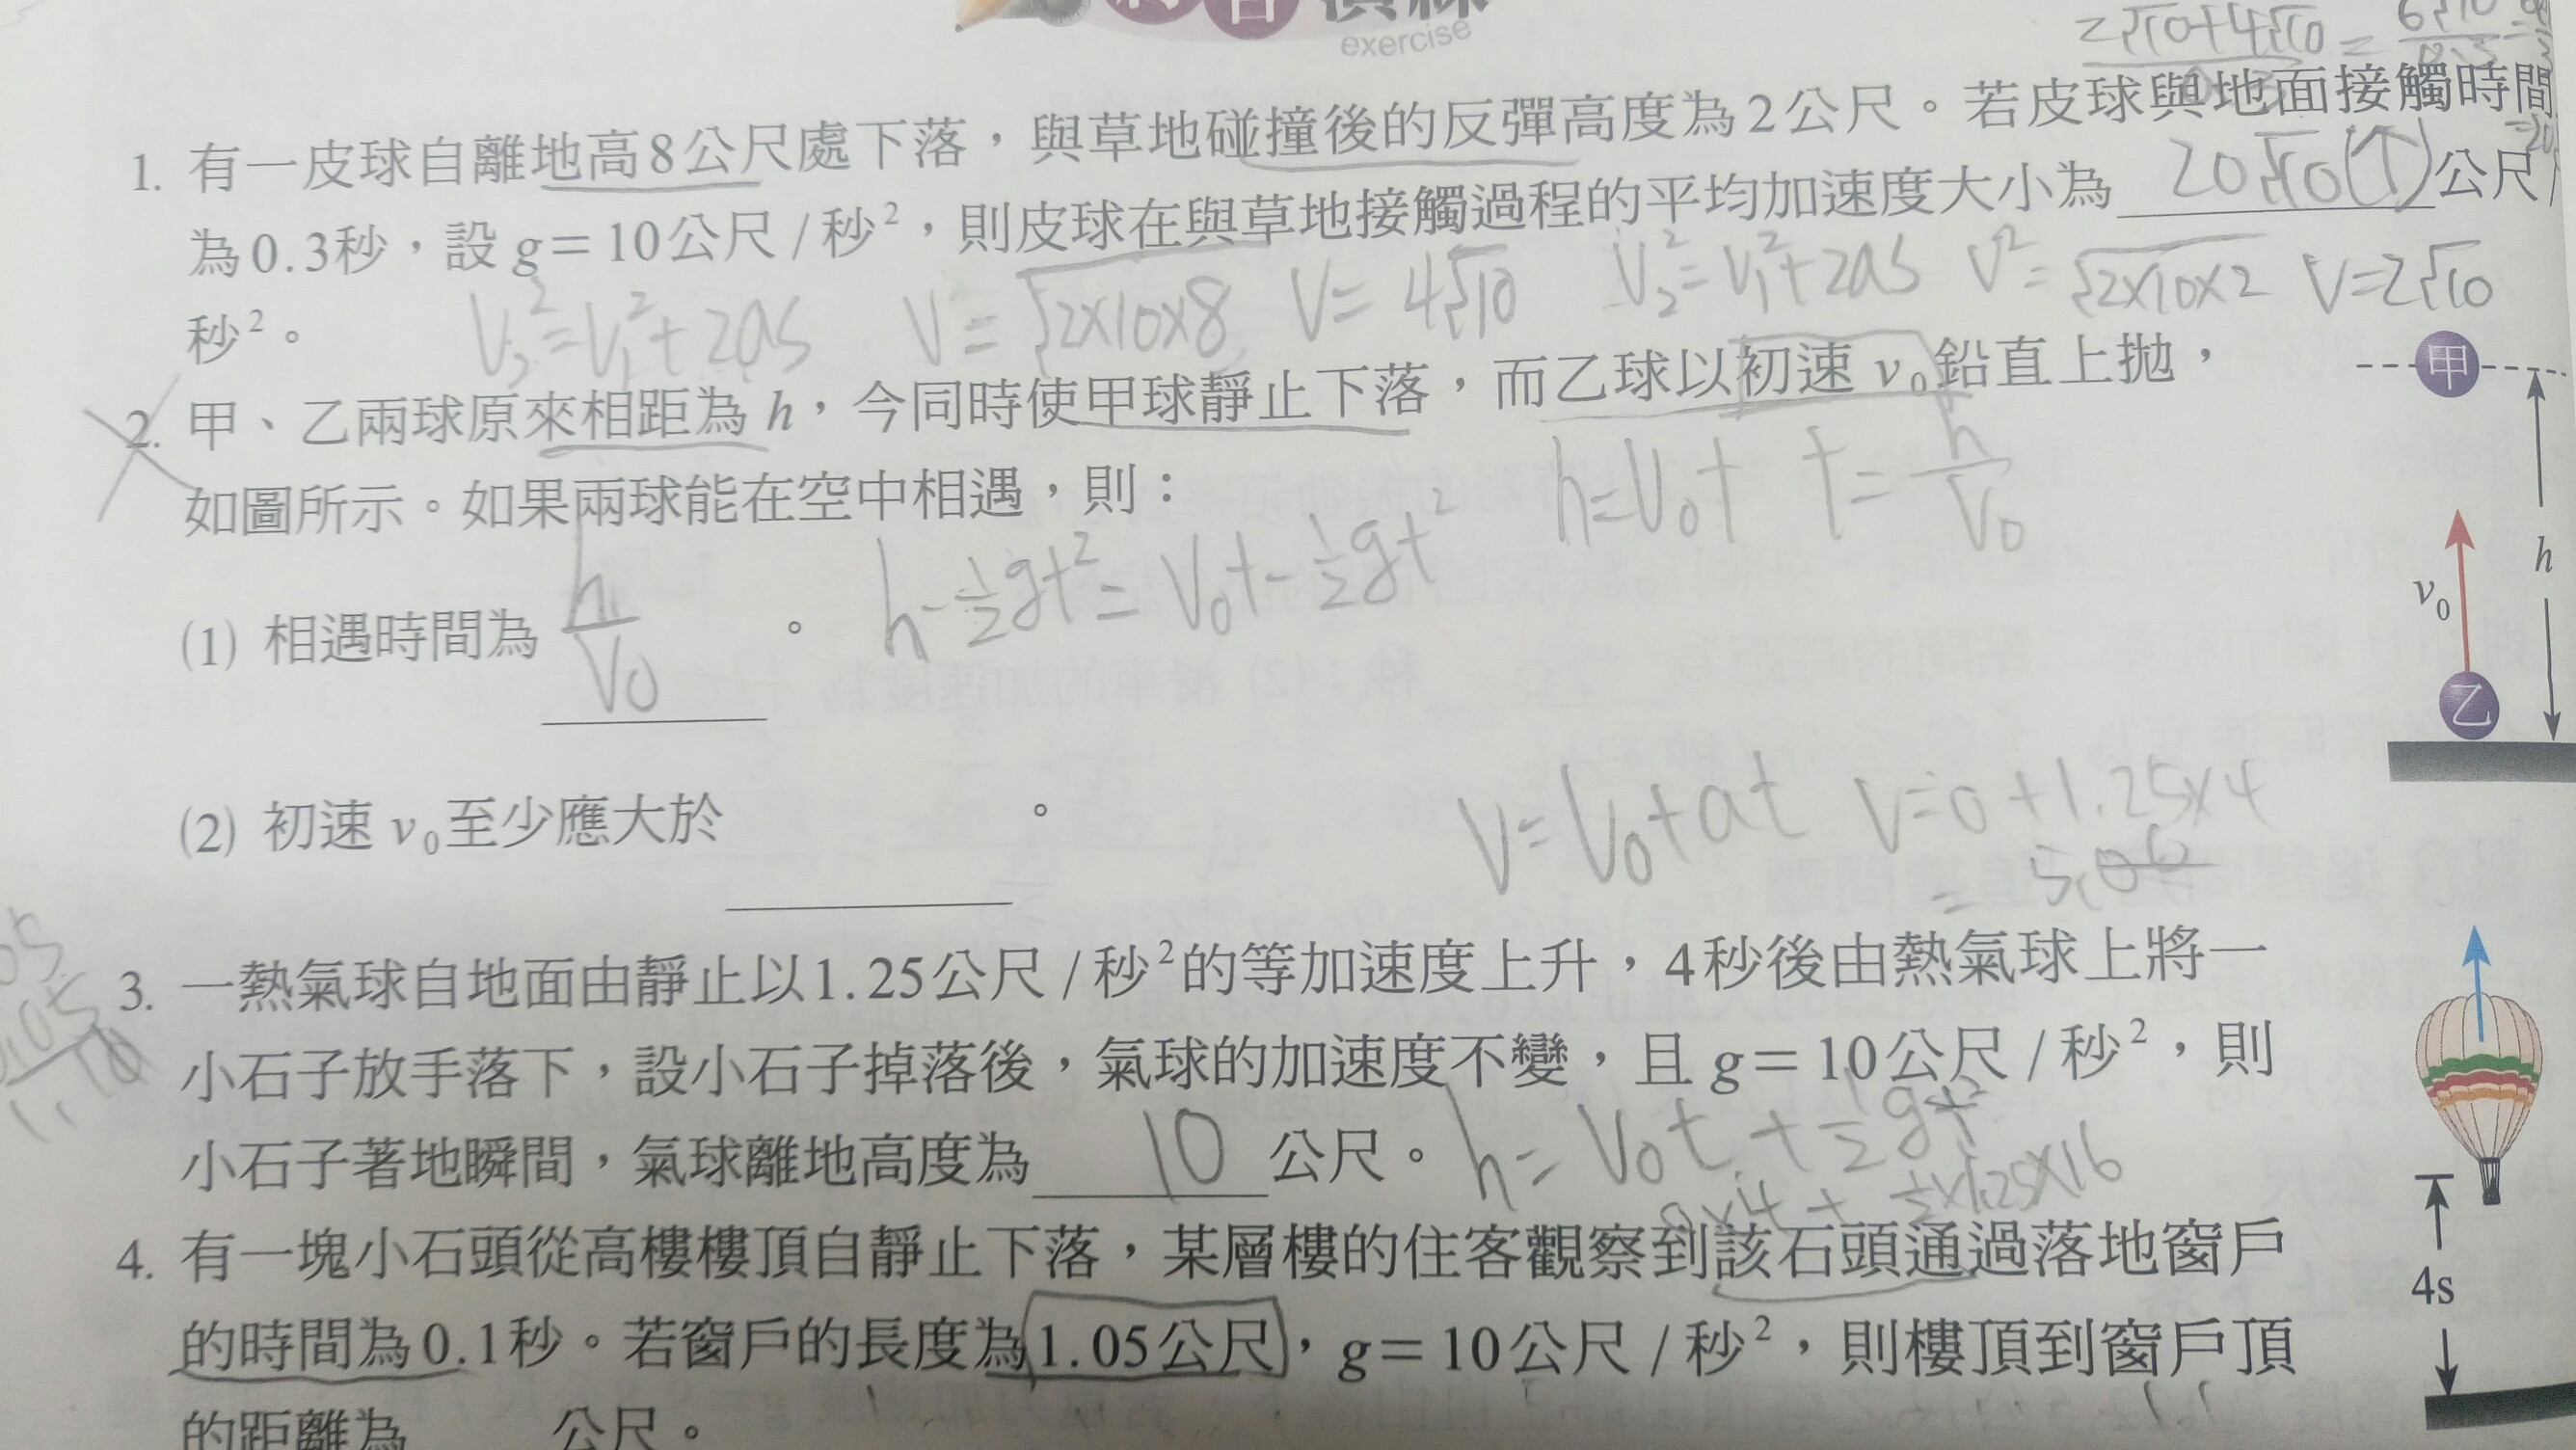 exercise
2√10+4√10 =
1. 有一皮球自離地高8公尺處下落，與草地碰撞後的反彈高度為2公尺。若皮球與地面接觸時間
為0.3秒，設 g=10公尺/秒²，則皮球在與草地接觸過程的平均加速度大小為 20√10(↑) 公尺/
秒²。
V₂²=V₁²+2as V=√2×10×8 V=4√10 V₂²=V₁²+2as V²=√2×10×2 V=2√10
2. 甲、乙兩球原來相距為 h，今同時使甲球靜止下落，而乙球以初速 v₀ 鉛直上拋，
如圖所示。如果兩球能在空中相遇，則：
h=V₀t t=h/V₀
(1) 相遇時間為 h/V₀ 。 h-½gt²=V₀t-½gt²
(2) 初速 v₀至少應大於 。
甲
h
v₀
乙
V=V₀+at V=0+1.25×4
3. 一熱氣球自地面由靜止以1.25公尺/秒²的等加速度上升，4秒後由熱氣球上將一
小石子放手落下，設小石子掉落後，氣球的加速度不變，且 g=10公尺/秒²，則
小石子著地瞬間，氣球離地高度為 10 公尺。 h=V₀t+½gt²
0×4+½×1.25×16
4s
4. 有一塊小石頭從高樓樓頂自靜止下落，某層樓的住客觀察到該石頭通過落地窗戶
的時間為0.1秒。若窗戶的長度為1.05公尺，g=10公尺/秒²，則樓頂到窗戶頂
的距離為 公尺。